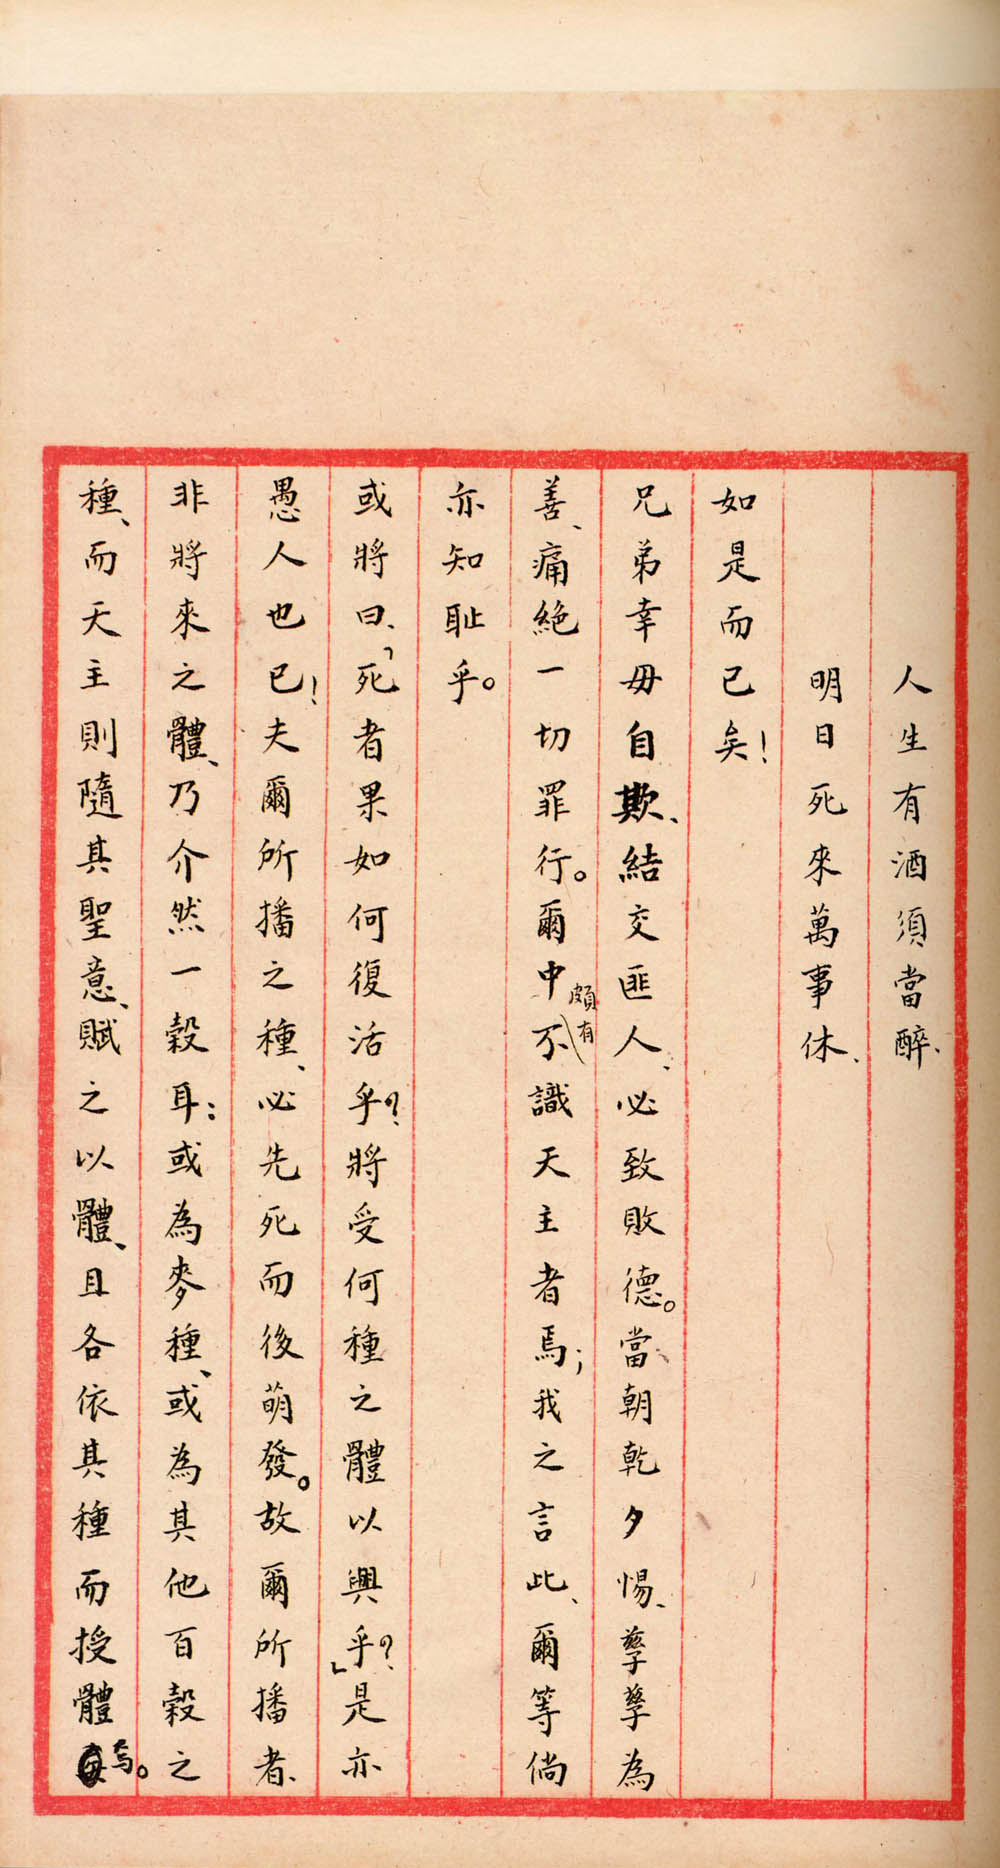 人生有酒須當醉、
明日死來萬事休、
如是而已矣！
兄弟幸毋自欺、結交匪人、必致敗德。當朝乾夕惕、孳孳為
善、痛絕一切罪行。爾中頗有不識天主者焉；我之言此、爾等倘
亦知恥乎。
或將曰、「死者果如何復活乎？將受何種之體以興乎？」是亦
愚人也已！夫爾所播之種、必先死而後萌發。故爾所播者、
非將來之體、乃介然一穀耳：或為麥種、或為其他百穀之
種、而天主則隨其聖意、賦之以體、且各依其種而授體焉。